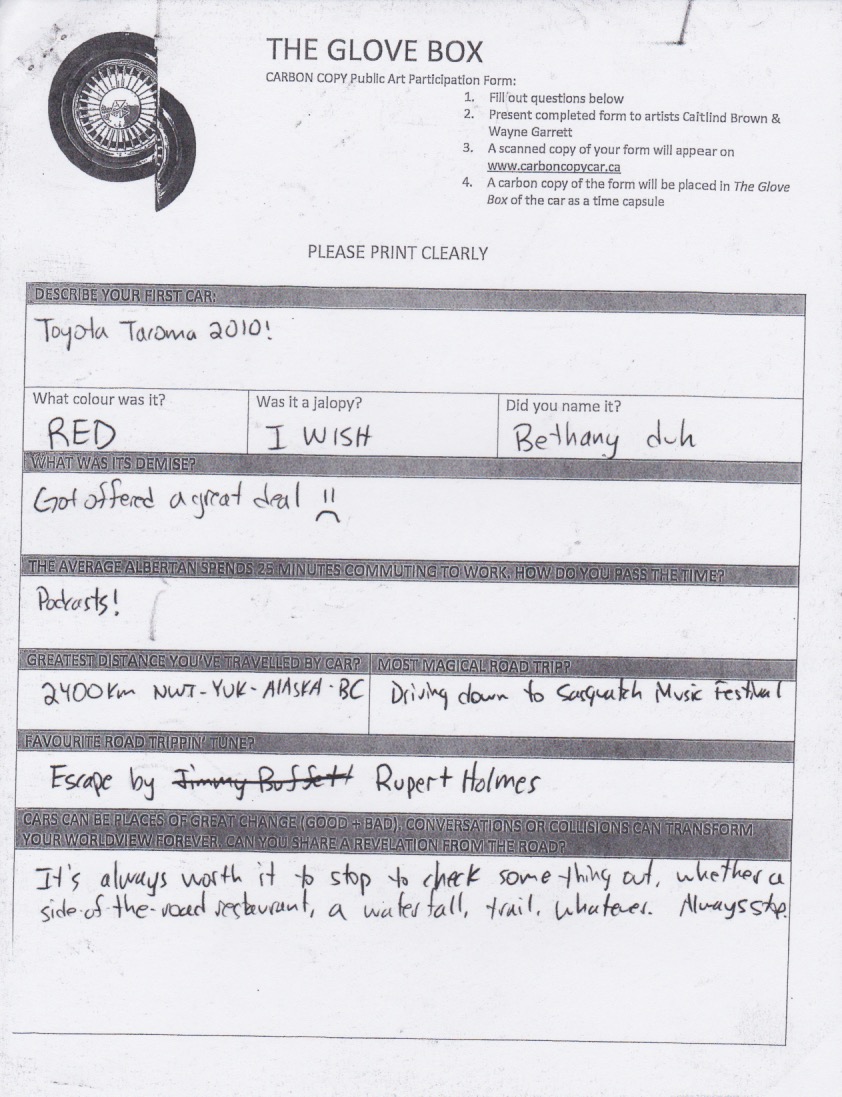 THE GLOVE BOX
CARBON COPY Public Art Participation Form:
1. Fill out questions below
2. Present completed form to artists Caitlind Brown &
Wayne Garrett
3. A scanned copy of your form will appear on
www.carboncopycar.ca
4. A carbon copy of the form will be placed in The Glove
Box of the car as a time capsule
PLEASE PRINT CLEARLY
DESCRIBE YOUR FIRST CAR:
Toyota Tacoma 2010!
What colour was it?
RED
Was it a jalopy?
I WISH
Did you name it?
Bethany duh
WHAT WAS ITS DEMISE?
Got offered a great deal
THE AVERAGE ALBERTAN SPENDS 25 MINUTES COMMUTING TO WORK. HOW DO YOU PASS THE TIME?
Podcasts!
GREATEST DISTANCE YOU'VE TRAVELLED BY CAR?
2400Km NWT-YUK-AlASKA-BC
MOST MAGICAL ROAD TRIP?
Driving down to Sasquatch Music Festival
FAVOURITE ROAD TRIPPIN' TUNE?
Escape by Jimmy Buffett Rupert Holmes
CARS CAN BE PLACES OF GREAT CHANGE (GOOD + BAD). CONVERSATIONS OR COLLISIONS CAN TRANSFORM
YOUR WORLDVIEW FOREVER. CAN YOU SHARE A REVELATION FROM THE ROAD?
It's always worth it to stop to check something out, whether a
side-of-the-road restaurant, a waterfall, trail, whatever. Always stop.